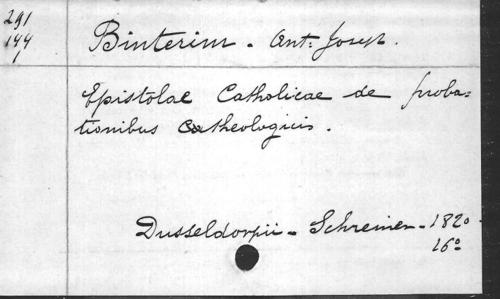 291
144
Binterim - Ant: Joseph.
Epistolae Catholicae de proba=
tionibus theologicis.
Dusseldorpii - Schreiner - 1820
16º